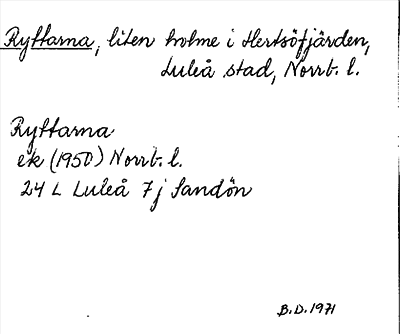 Ryttarna, liten holme i Hertsöfjärden,
Luleå stad, Norrb. l.
Ryttarna
ek (1950) Norrb. l.
24 L Luleå 7j Sandön
B.D. 1971